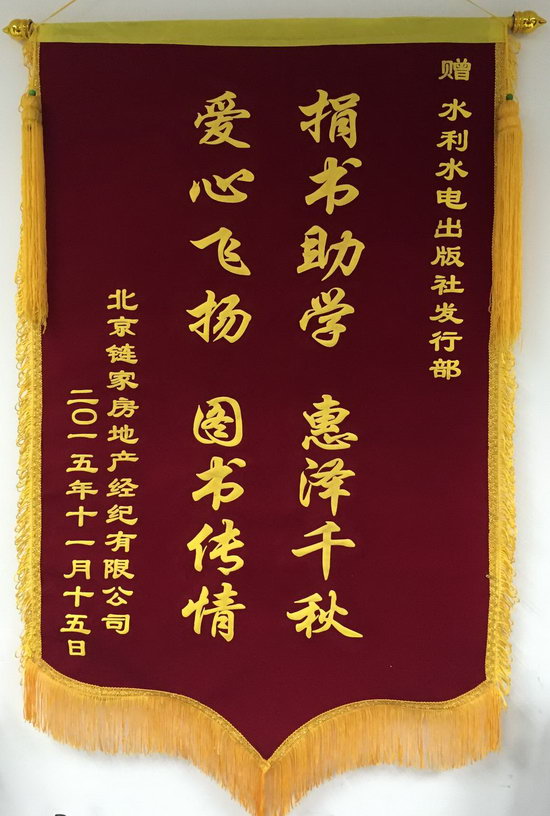 赠 水利水电出版社发行部
捐书助学 惠泽千秋
爱心飞扬 图书传情
北京链家房地产经纪有限公司
二〇一五年十一月十五日